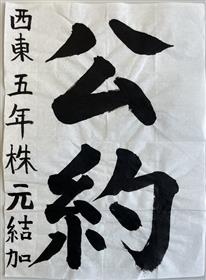 公約
西東五年株元結加